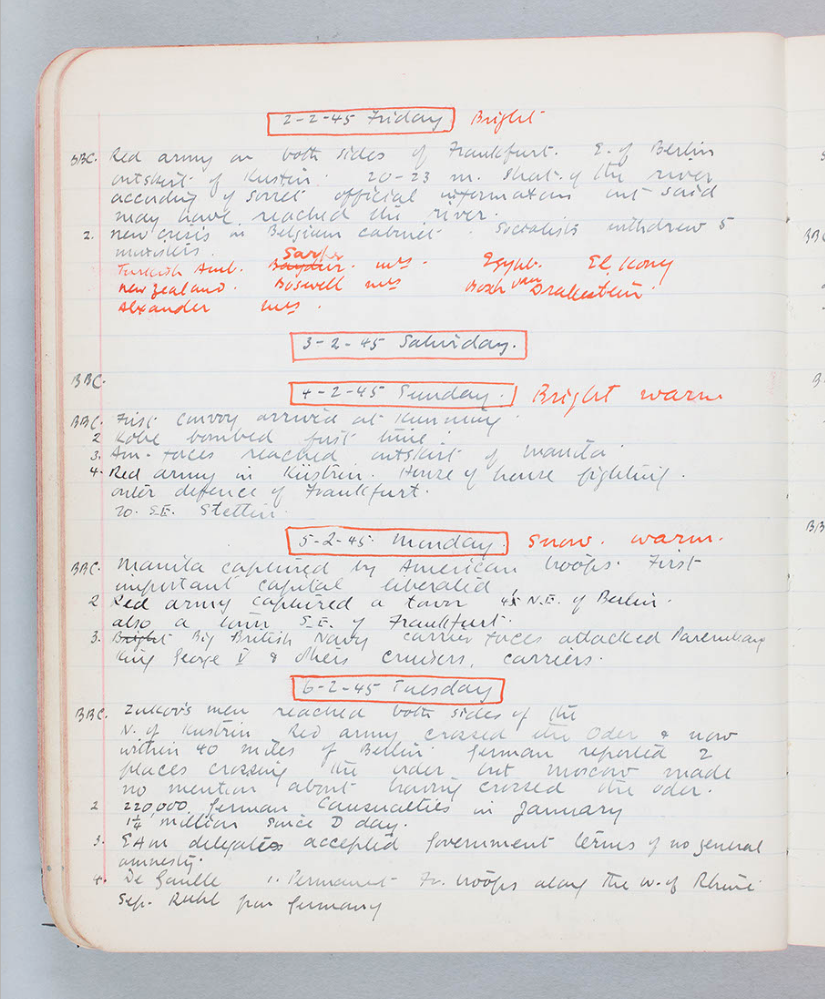 2-2-45 Friday. Bright
BBC. Red army on both sides of Frankfurt. E. of Berlin
outskirt of Kustrin. 20-23 m. short of the river
according of Soviet official information but said
may have reached the river.
2. New crisis in Belgium cabinet. Socialists withdrew 5
ministers.
Turkish Amb. Baydur. Sarper mrs. Egypt. El Kony
New Zealand. Boswell mrs Bosch van Drakestein.
Alexander mrs.
3-2-45 Saturday.
BBC.
4-2-45 Sunday. Bright warm
BBC. First convoy arrived at Kunming.
2 Kobe bombed first time.
3. Am. forces reached outskirt of Manila.
4. Red army in Küstrin. House of house fighting.
outer defence of Frankfurt.
20. S.E. Stettin.
5-2-45. Monday. Snow. warm.
BBC. Manila captured by American troops. First
important capital liberated
2 Red army captured a town 45 N.E. of Berlin.
also a town S.E. of Frankfurt.
3. Bright Big British Navy carrier forces attacked
King George V & others cruisers, carriers.
6-2-45 Tuesday
BBC. Zukov's men reached both sides of the
N. of Kustrin Red army crossed the Oder & now
within 40 miles of Berlin. German reported 2
places crossing the order but Moscow made
no mention about having crossed the oder.
2 220,000 German Causualties in January
1¼ million since D day.
3. EAM delegates accepted Government terms of no general
amnesty.
4. De Gaulle 1. Permanent Fr. troops along the w. of Rhine
Sep. Ruhl from Germany
BBC
B
BB